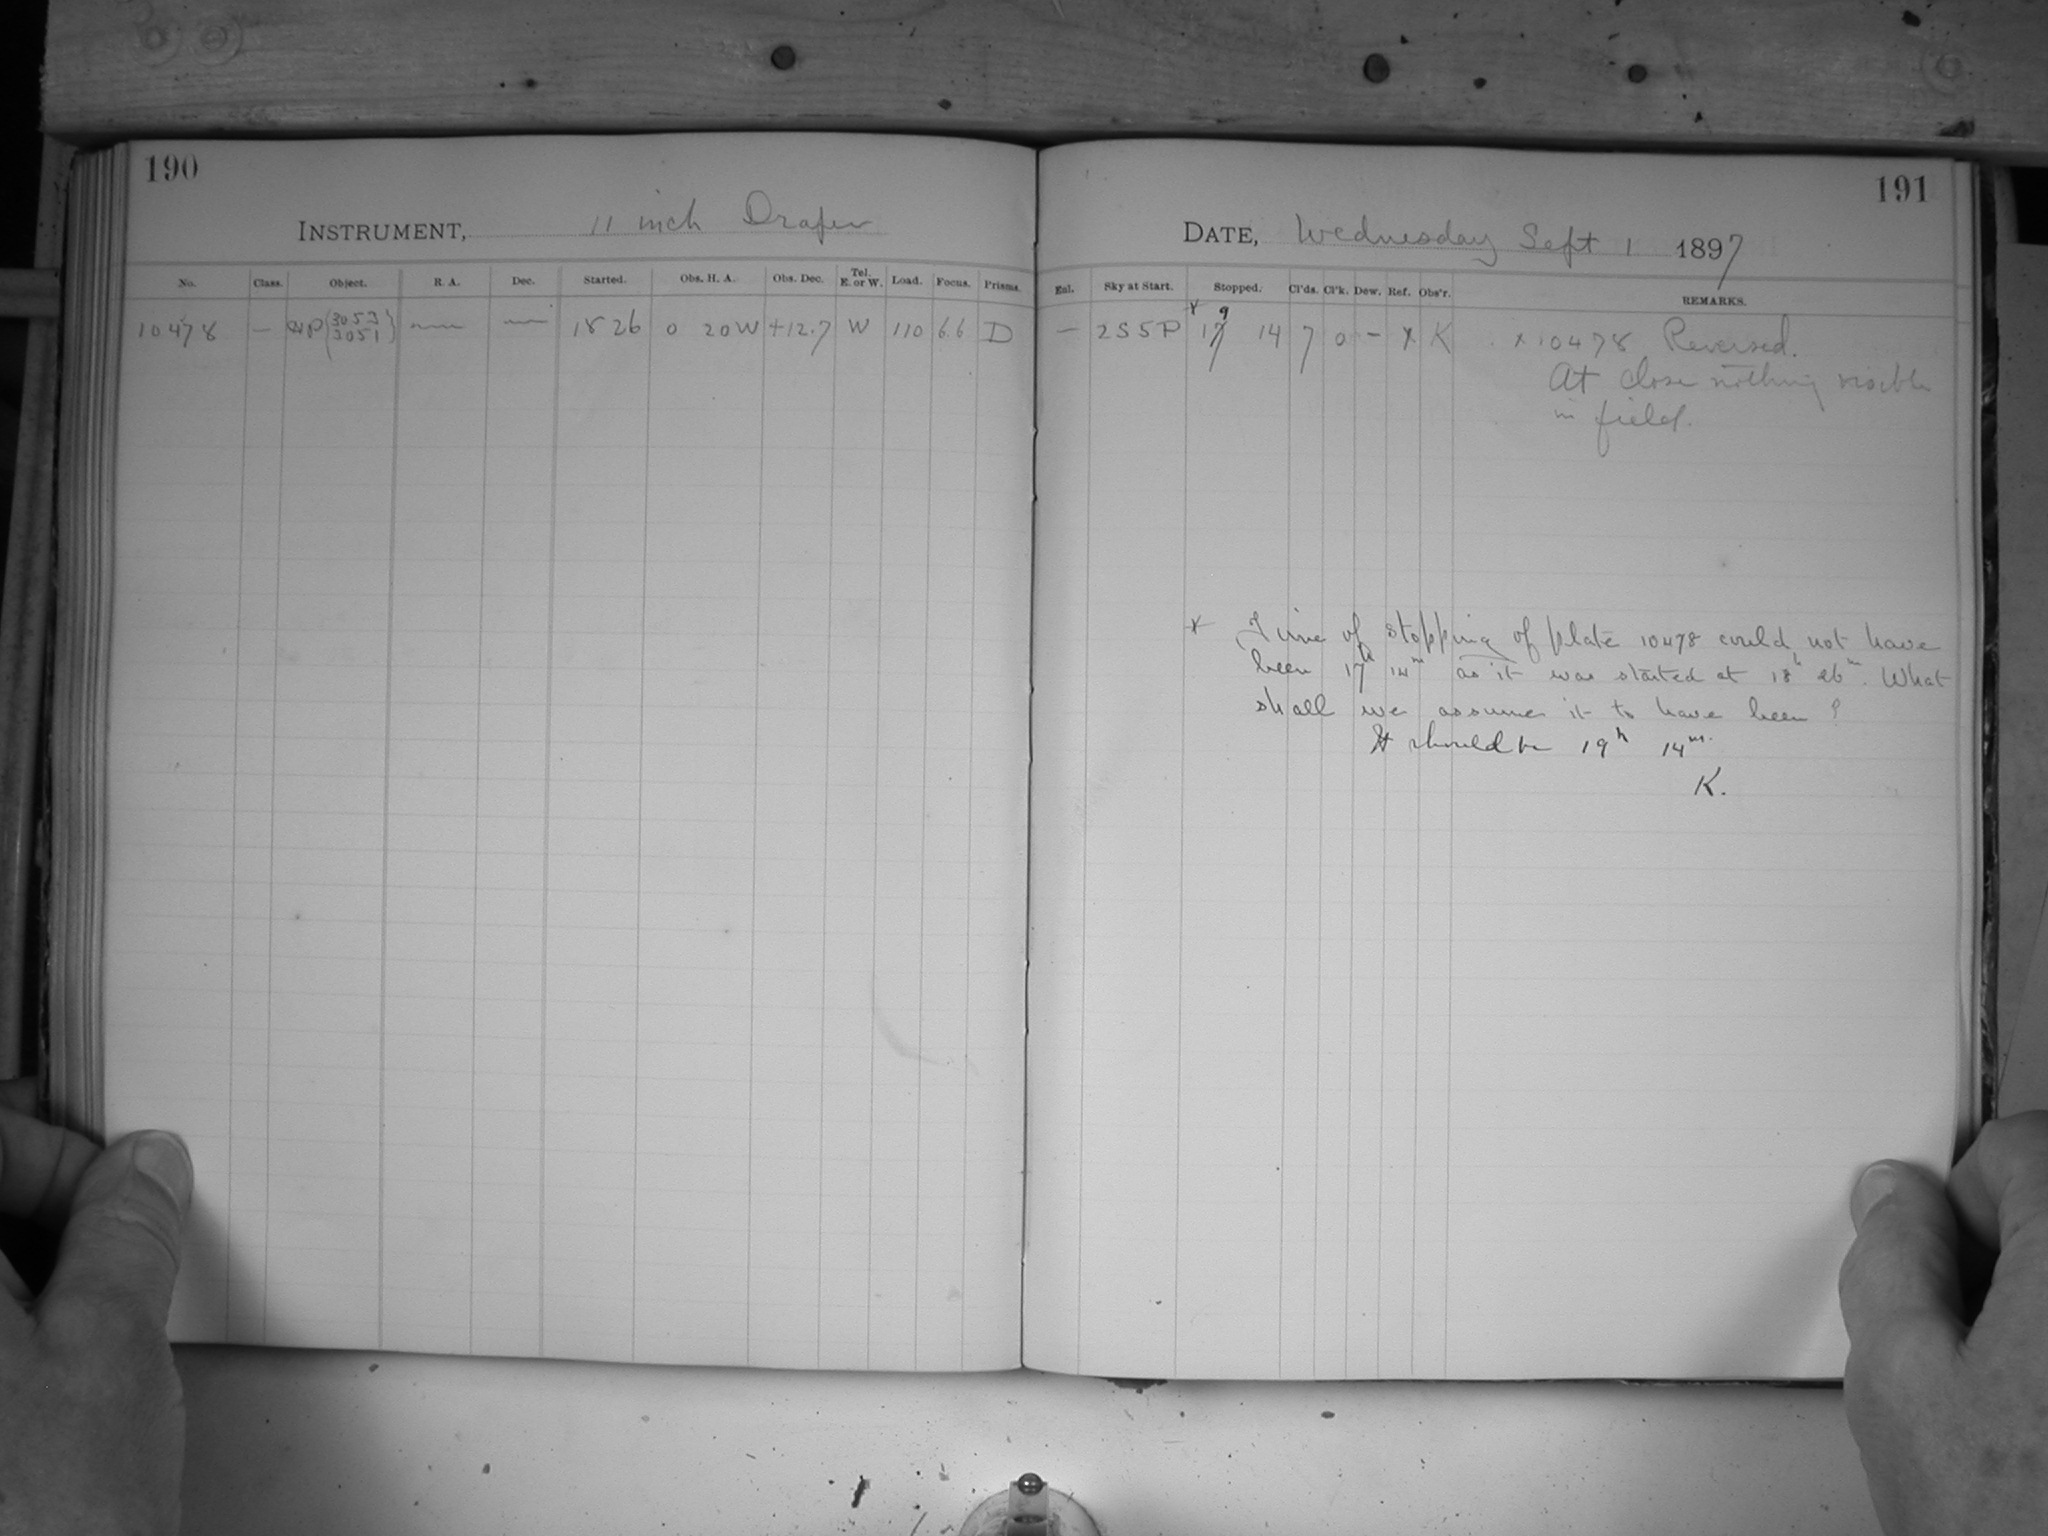 190
INSTRUMENT, 11 inch Draper
No. Class. Object. R. A. Dec. Started. Obs. H. A. Obs. Dec. Tel. E. or W. Load. Focus. Prisms.
10478 — (3053 3051) — — 18 26 0 20 W +12.7 W 110 6.6 D
191
DATE, Wednesday Sept 1 1897
Exl. Sky at Start. Stopped. Cl'ds. Cl'k. Dew. Ref. Obs'r. REMARKS.
— 2S5P * 17 9 14 7 0 — x K x 10478 Reversed.
At close nothing visible
in field.
* Time of stopping of plate 10478 could not have
been 17h 14m as it was started at 18h 26m. What
shall we assume it to have been?
It should be 19h 14m.
K.